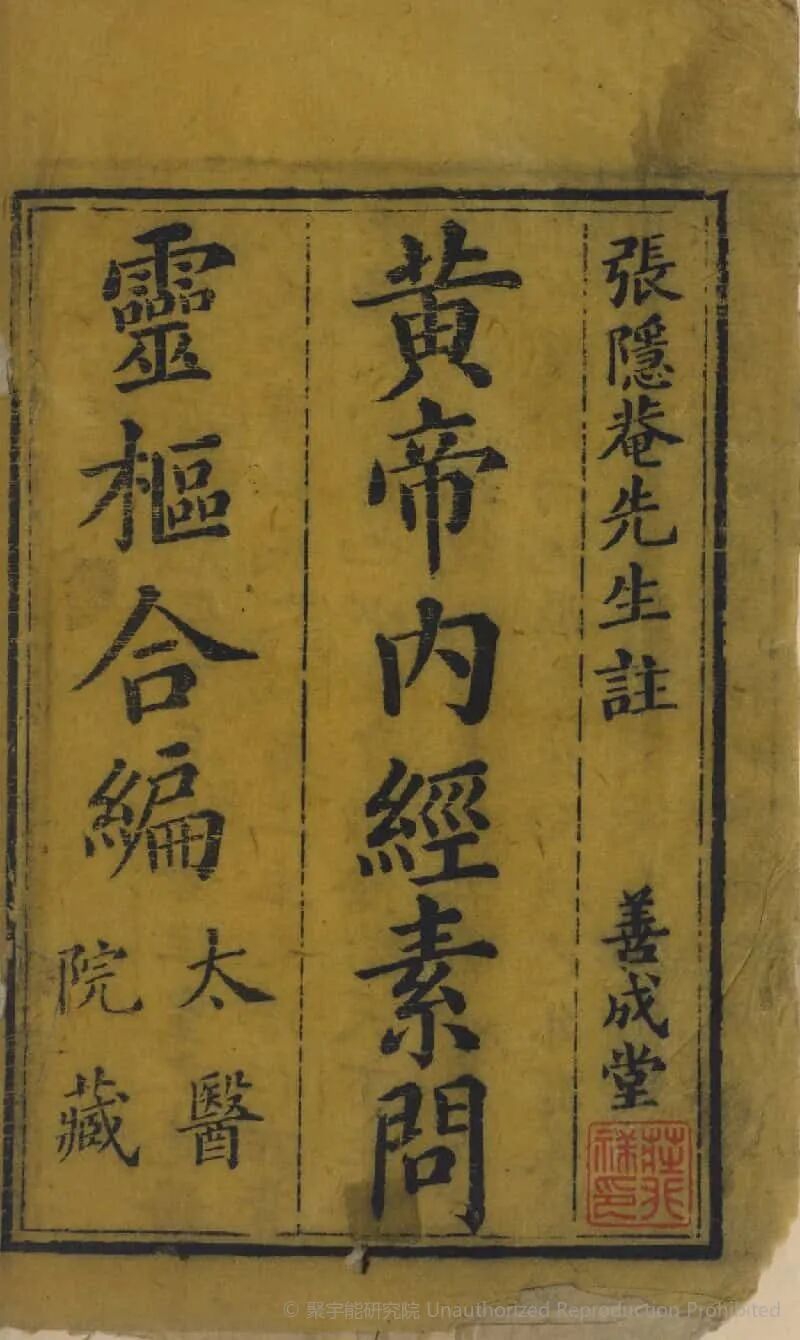 張隱菴先生註
善成堂
黃帝內經素問
靈樞合編
太醫
院藏
© 聚宇能研究院 Unauthorized Reproduction Prohibited